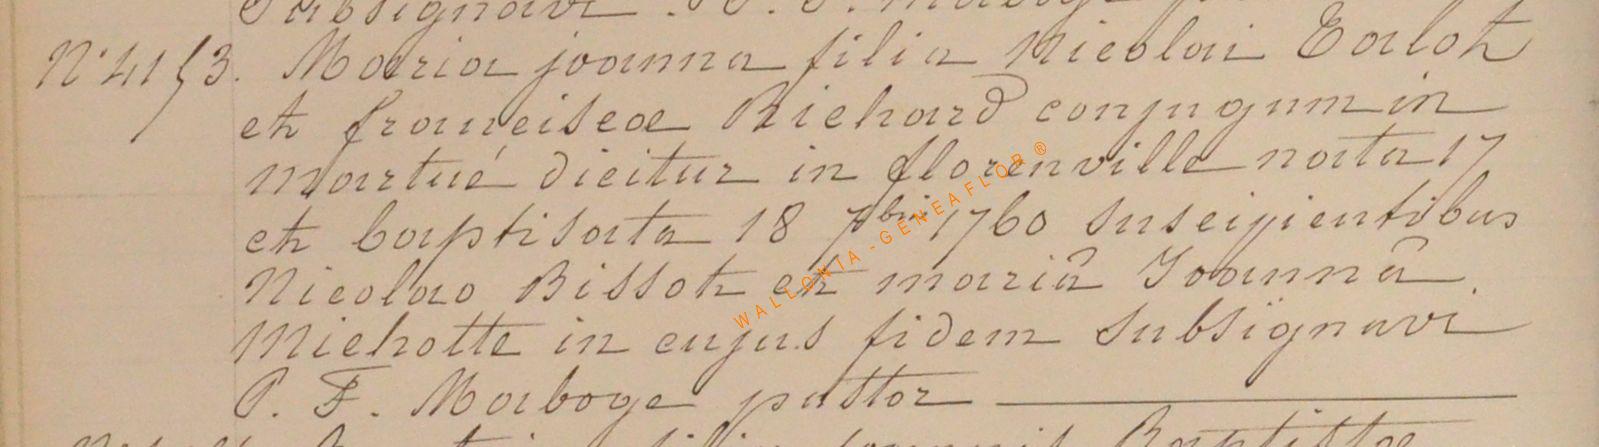 subsignavi. P. F.
N°4153. Maria joanna filia Nicolai Ealot
et franciscae Richard conjugum in
martué dicitur in florenville nata 17
et baptisata 18 7bris 1760 suscipientibus
Nicolao Bissot et mariâ Joannâ
Michotte in cujus fidem subsignavi
P. F. Maboge pastor
WALLONIA-GENEAFLOR®
filia Joannis Baptistae